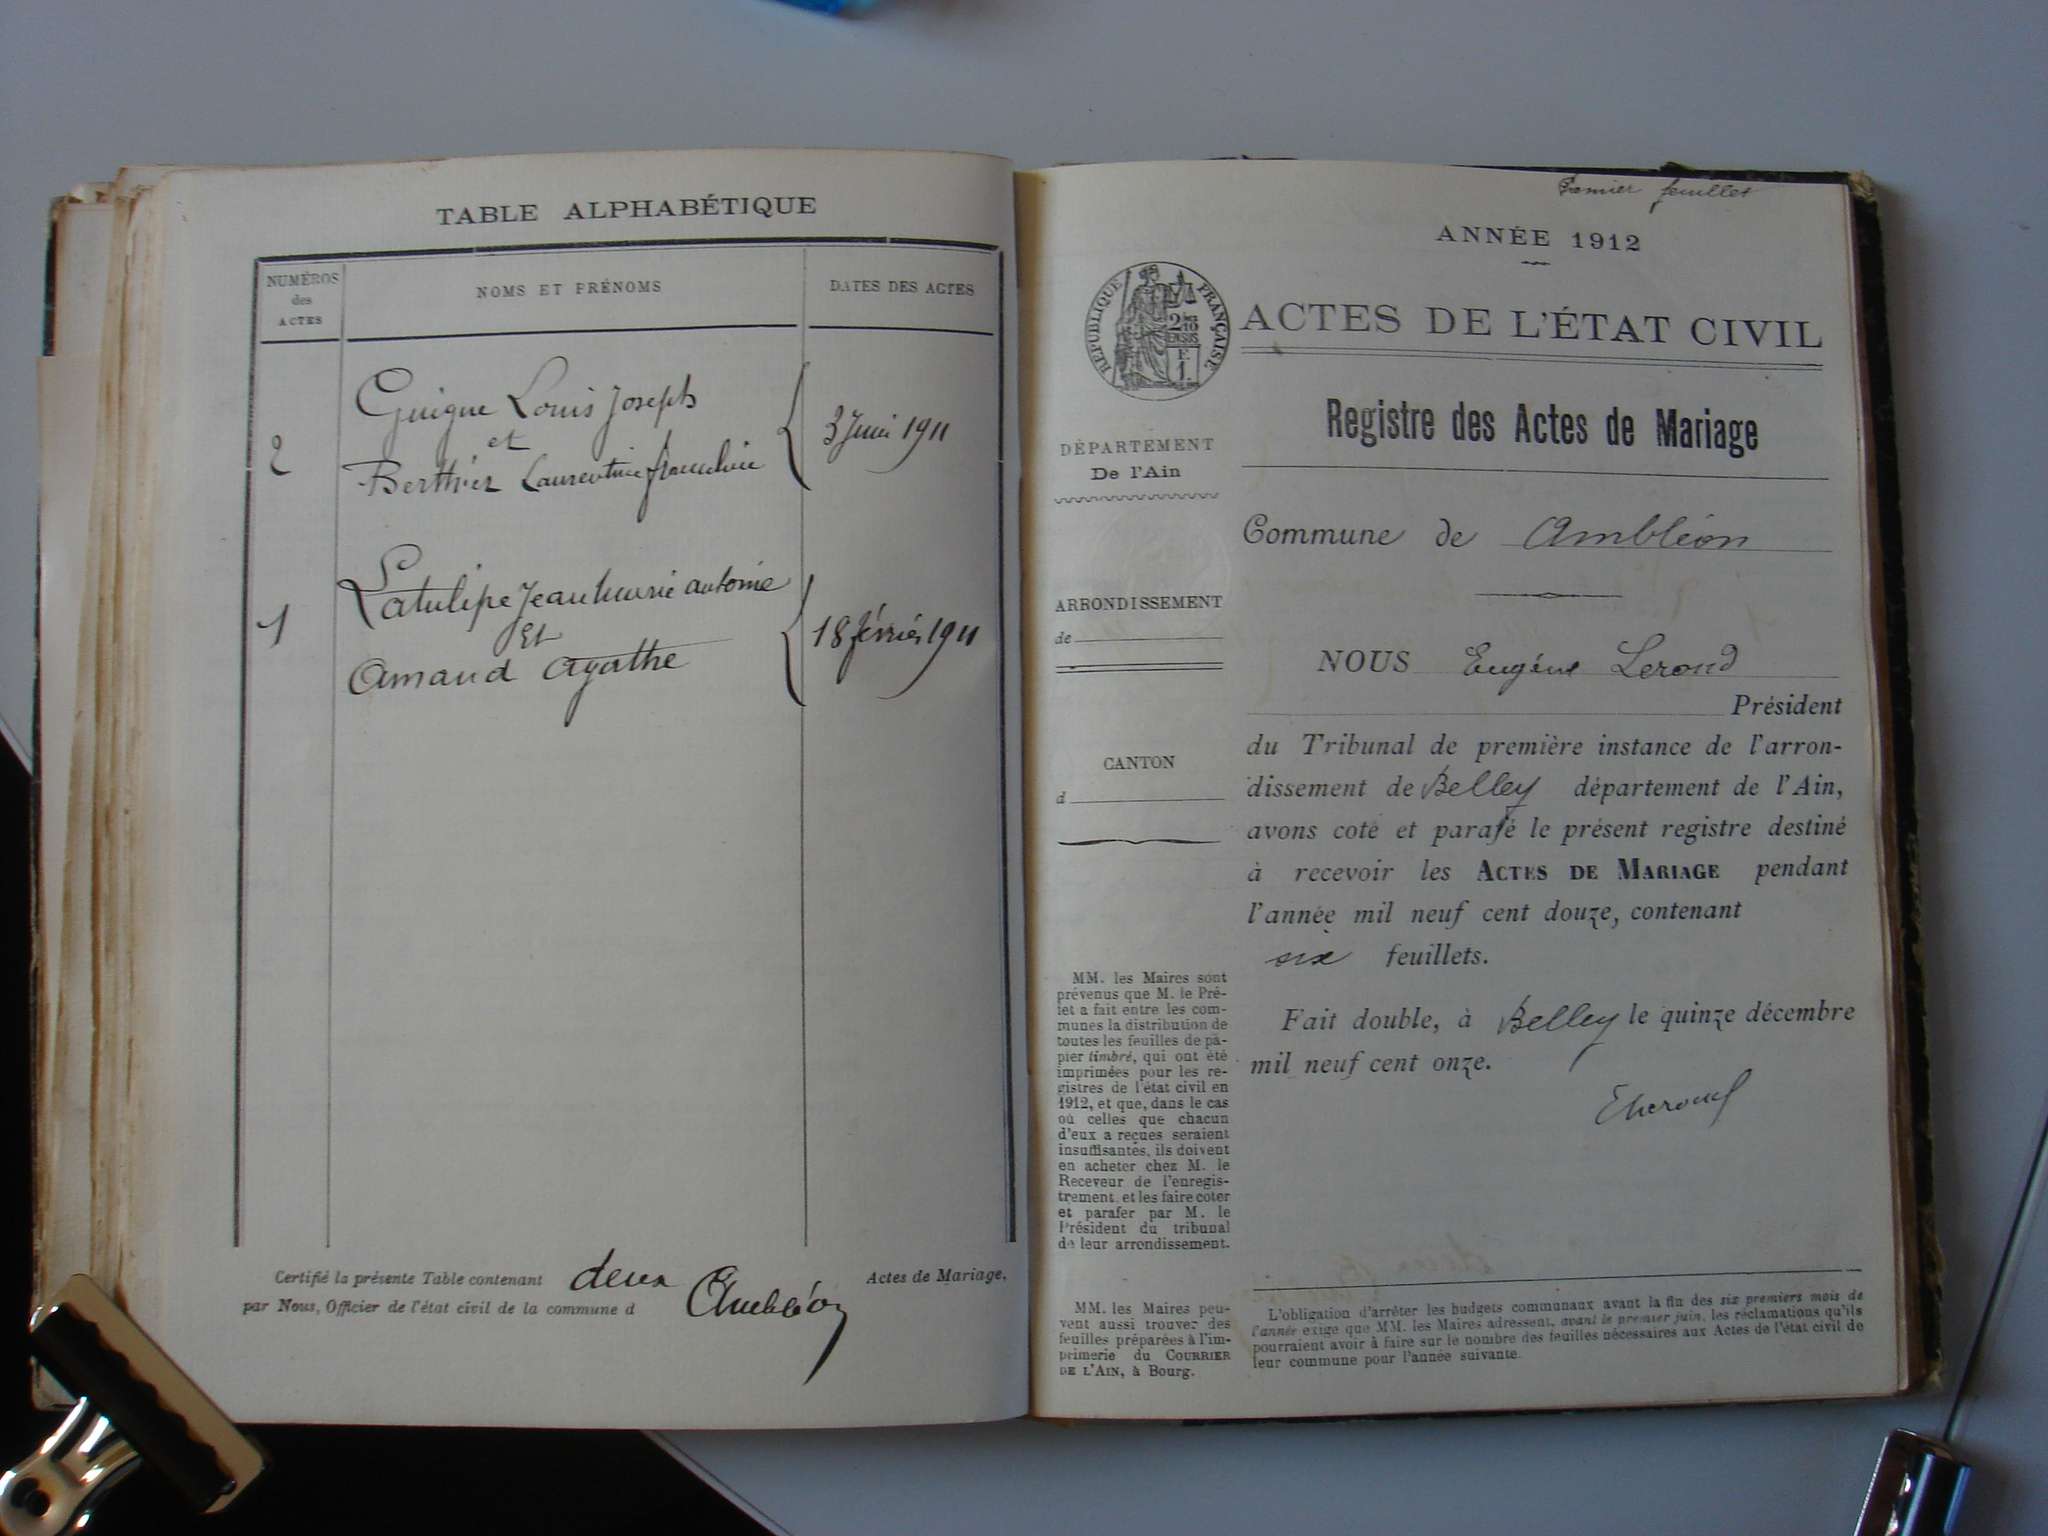 TABLE ALPHABÉTIQUE
NUMÉROS
des
ACTES
NOMS ET PRÉNOMS
DATES DES ACTES
Guigue Louis Joseph
et
2
Berthier Laurentine
3 Juin 1911
Latulipe Jean Marie antoine
Et
1
Amand Agathe
18 février 1911
Certifié la présente Table contenant deux Actes de Mariage,
par Nous, Officier de l'état civil de la commune d Ambléon
Premier feuillet
ANNÉE 1912
RÉPUBLIQUE FRANÇAISE
ACTES DE L'ÉTAT CIVIL
Registre des Actes de Mariage
DÉPARTEMENT
De l'Ain
Commune de Ambléon
ARRONDISSEMENT
de
NOUS Eugène Lerond
Président
du Tribunal de première instance de l'arron-
dissement de Belley département de l'Ain,
avons coté et parafé le présent registre destiné
à recevoir les ACTES DE MARIAGE pendant
l'année mil neuf cent douze, contenant
six feuillets.
Fait double, à Belley le quinze décembre
mil neuf cent onze.
ELerond
CANTON
d
MM. les Maires sont
prévenus que M. le Pré-
fet a fait entre les com-
munes la distribution de
toutes les feuilles de pa-
pier timbré, qui ont été
imprimées pour les re-
gistres de l'état civil en
1912, et que, dans le cas
où celles que chacun
d'eux a reçues seraient
insuffisantes, ils doivent
en acheter chez M. le
Receveur de l'enregis-
trement, et les faire coter
et parafer par M. le
Président du tribunal
de leur arrondissement.
MM. les Maires peu-
vent aussi trouver des
feuilles préparées à l'im-
primerie du COURRIER
DE L'AIN, à Bourg.
L'obligation d'arrêter les budgets communaux avant la fin des six premiers mois de
l'année exige que MM. les Maires adressent, avant le premier juin, les réclamations qu'ils
pourraient avoir à faire sur le nombre des feuilles nécessaires aux Actes de l'état civil de
leur commune pour l'année suivante.